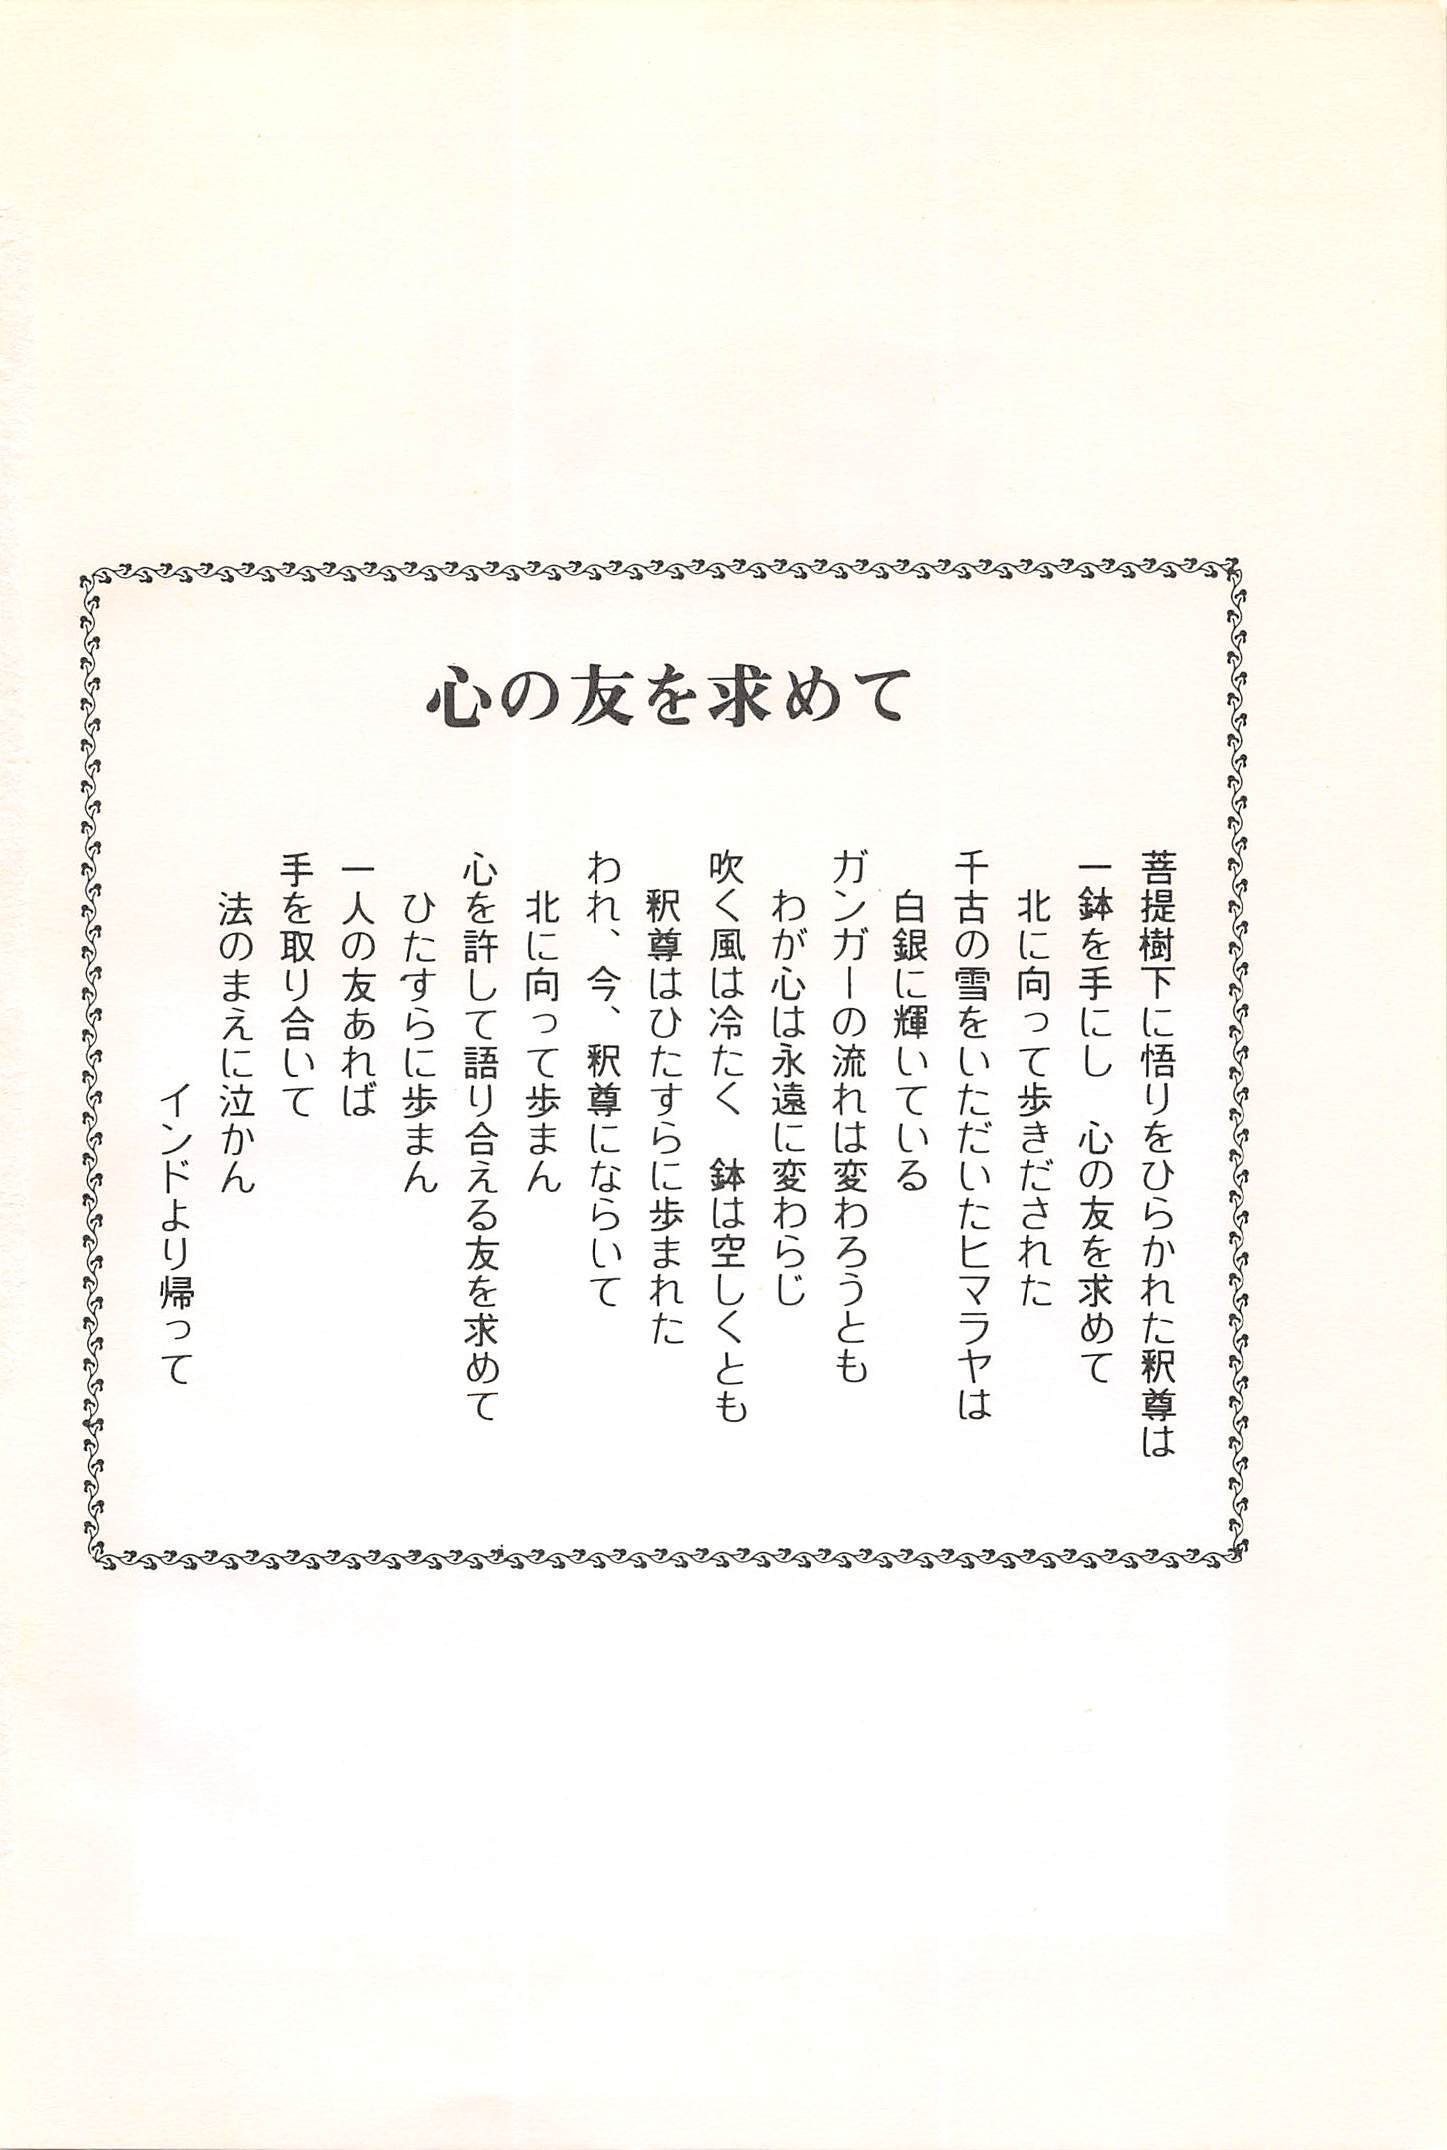 心の友を求めて
菩提樹下に悟りをひらかれた釈尊は
一鉢を手にし　心の友を求めて
北に向って歩きだされた
千古の雪をいただいたヒマラヤは
白銀に輝いている
ガンガーの流れは変わろうとも
わが心は永遠に変わらじ
吹く風は冷たく　鉢は空しくとも
釈尊はひたすらに歩まれた
われ、今、釈尊にならいて
北に向って歩まん
心を許して語り合える友を求めて
ひたすらに歩まん
一人の友あれば
手を取り合いて
法のまえに泣かん
インドより帰って